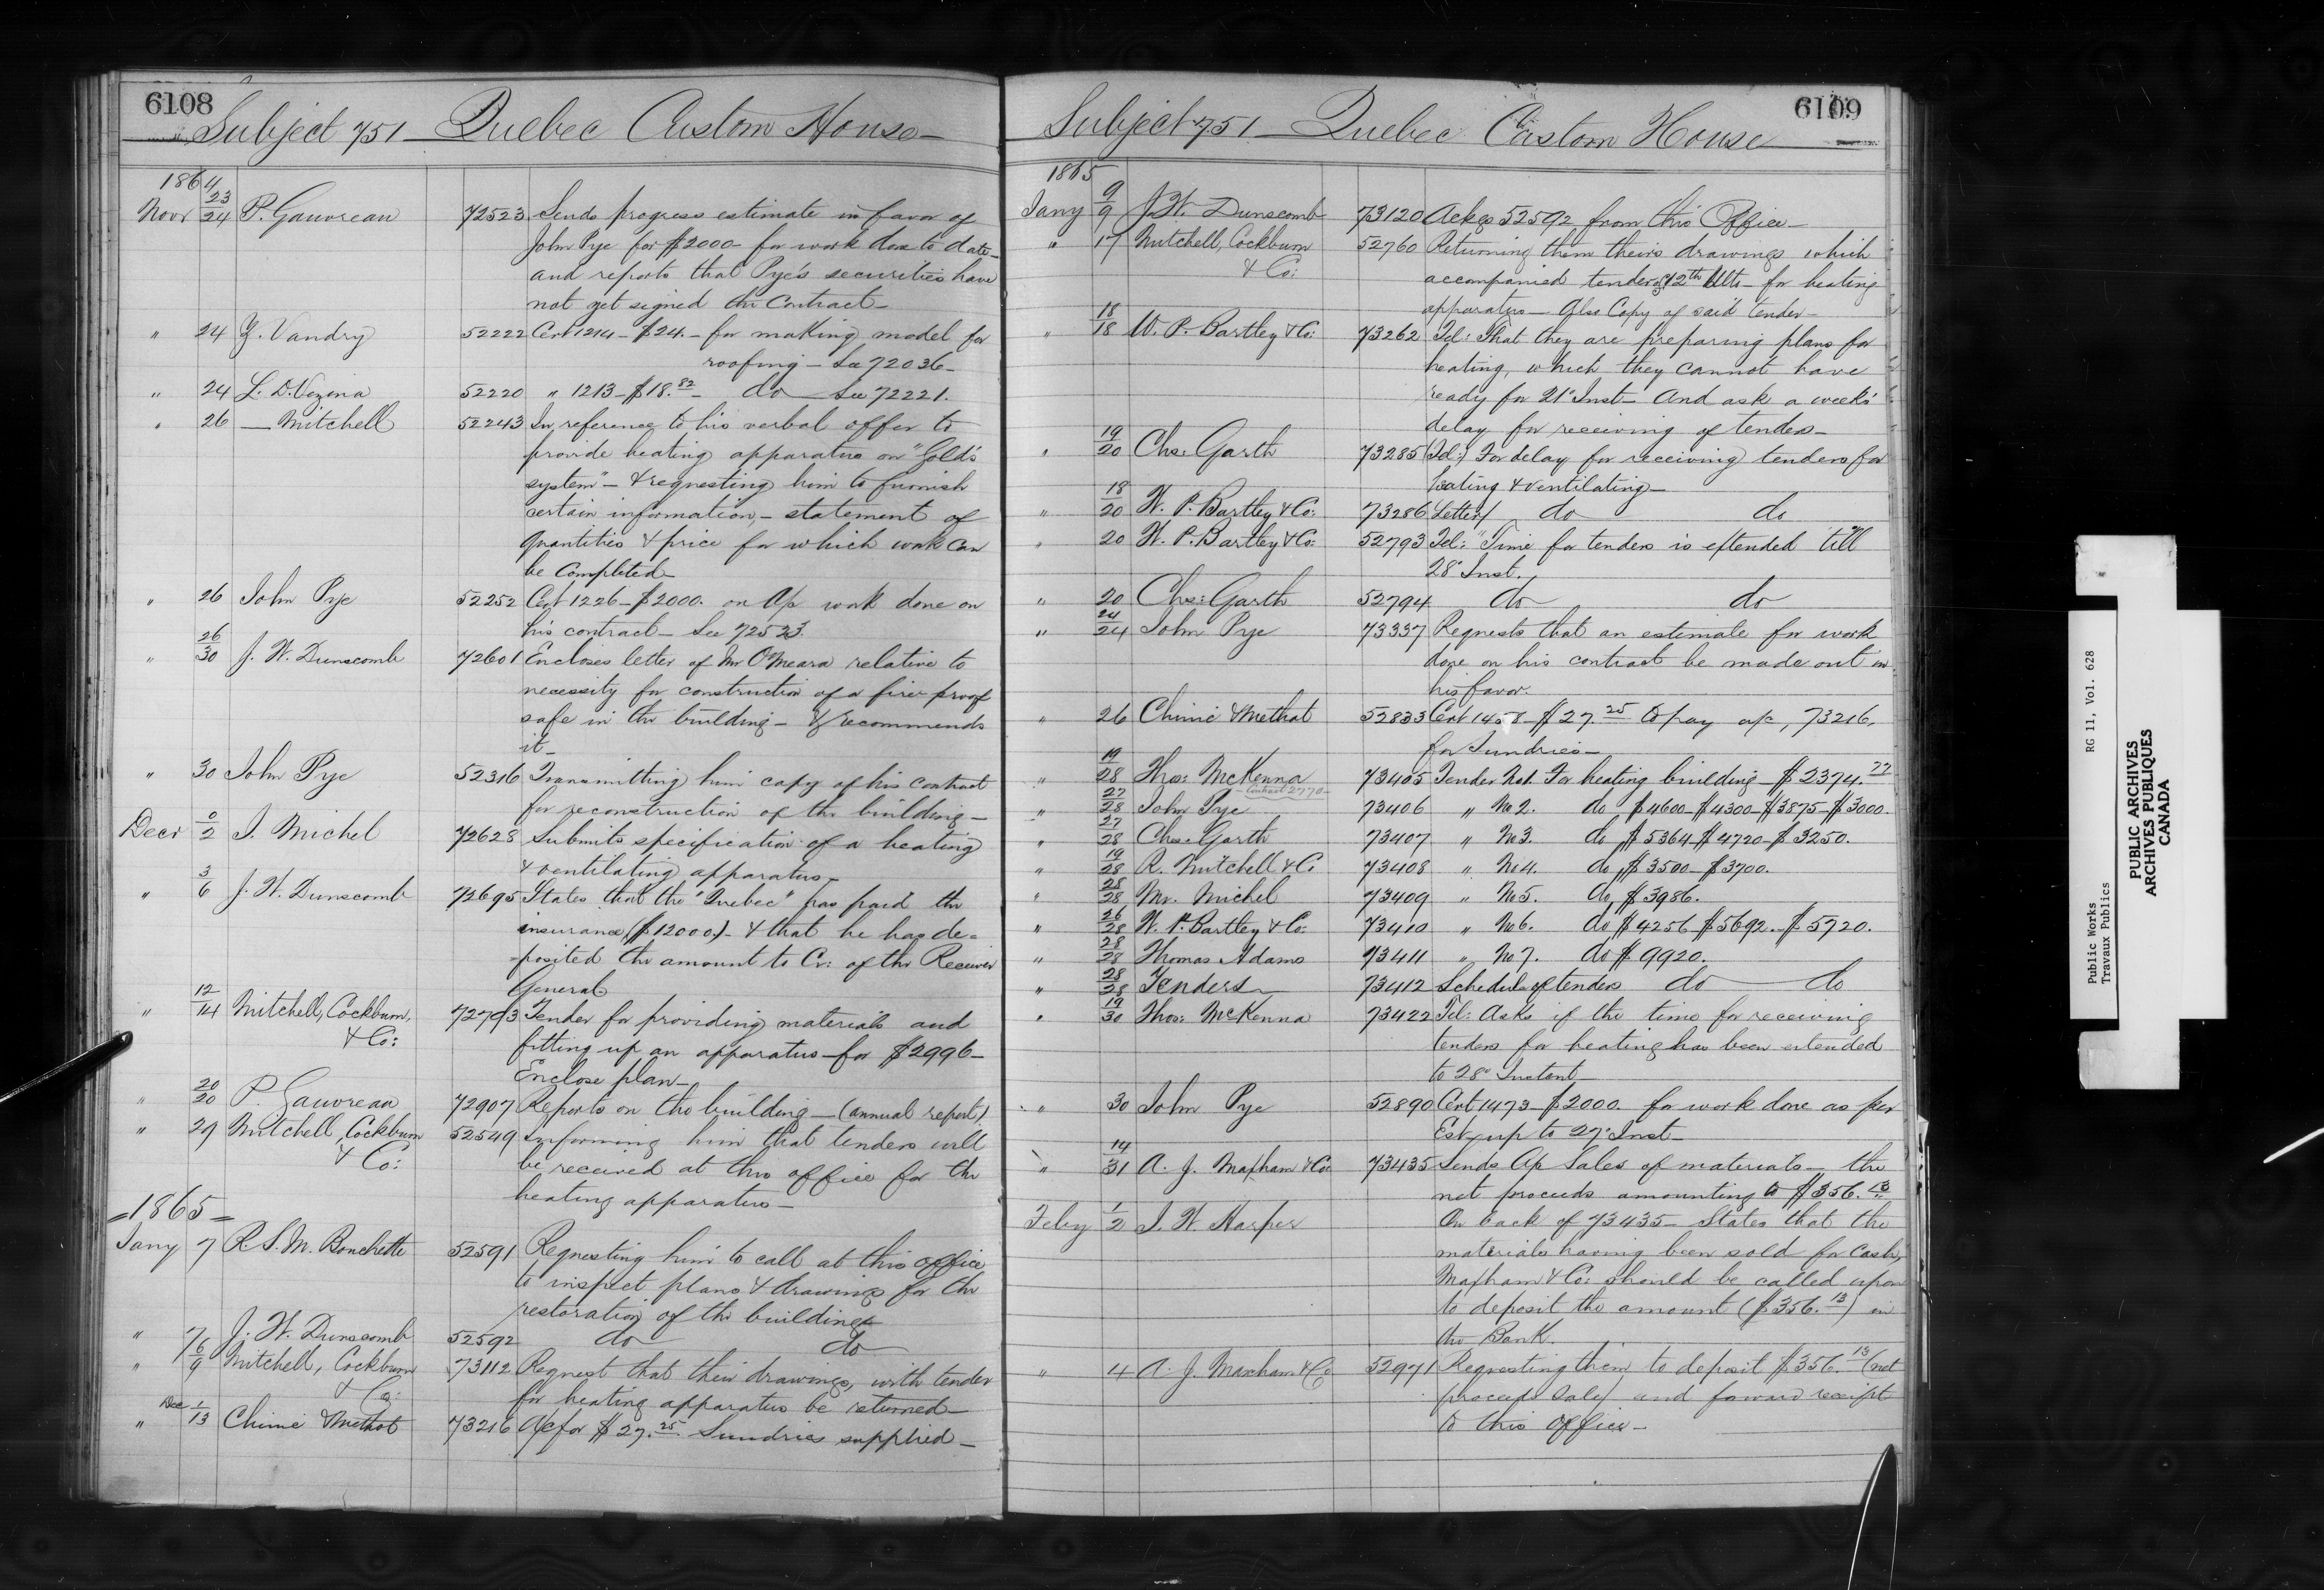 6108
Subject 751 – Quebec Custom House –
1864
Novr 23/24 P. Gauvreau 72523 Sends progress estimate in favor of
John Pye for $2000 – for work done to date –
and reports that Pye's securities have
not yet signed the Contract –
" 24 Z. Vandry 52222 Cert 1214 – $24. – for making model for
roofing – See 72036 –
" 24 L. D. Vezina 52220 " 1213 – $18.82 – do See 72221.
" 26 — Mitchell 52243 In reference to his verbal offer to
provide heating apparatus on "Gold's
system" – & requesting him to furnish
certain information, – statement of
quantities & price for which work can
be Completed –
" 26 John Pye 52252 Cert 1226 – $2000. on a/c work done on
his contract – See 72523
" 26/30 J. W. Dunscomb 72601 Encloses letter of Mr O'Meara relative to
necessity for construction of a fire proof
safe in the building – & recommends
it –
" 30 John Pye 52316 Transmitting him copy of his contract
for reconstruction of the building –
Decr 0/2 J. Michel 72628 Submits specification of a heating
& ventilating apparatus –
" 3/6 J. W. Dunscomb 72695 States that the "Quebec" has paid the
insurance ($12000.) – & that he has de-
posited the amount to Cr: of the Receiver
General
" 12/14 Mitchell, Cockburn, 72793 Tender for providing materials and
& Co: fitting up an apparatus – for $2996 –
Enclose plan –
" 20/20 P. Gauvreau 72907 Reports on the building – (annual report)
" 29 Mitchell, Cockburn 52549 Informing him that tenders will
& Co: be received at this office for the
heating apparatus –
= 1865 =
Jany 7 R. S. M. Bouchette 52591 Requesting him to call at this office
to inspect plans & drawings for the
restoration of the building
" 7 J. W. Dunscomb 52592 do do
" 6/9 Mitchell, Cockburn 73112 Request that their drawings, with tender
& Co: for heating apparatus be returned –
" Dec 1/13 Chinic & Methot 73216 A/c for $27.25 Sundries supplied –
6109
Subject 751 – Quebec Custom House
1865
Jany 9/9 J. W. Dunscomb 73120 Ackgs 52592 from this Office –
" 17 Mitchell, Cockburn 52760 Returning them theirs drawings which
& Co: accompanied tender of 12th Ulto – for heating
apparatus – Also Copy of said tender –
" 18/18 W. P. Bartley & Co: 73262 Tel: That they are preparing plans for
heating, which they cannot have
ready for 21st Inst – And ask a week's
delay for receiving of tenders –
" 19/20 Chs: Garth 73285 (Tel:) For delay for receiving tenders for
heating & ventilating –
" 18/20 W. P. Bartley & Co: 73286 Letter/ do do
" 20 W. P. Bartley & Co: 52793 Tel: "Time for tenders is extended till
28" Inst.
" 20 Chs: Garth 52794 do do
" 24/24 John Pye 73337 Requests that an estimate for work
done on his contract be made out in
his favor.
" 26 Chinic & Methot 52833 Cert 1458 – $27.25 to pay a/c, 73216,
for Sundries –
" 19/28 Thos: McKenna 73405 Tender No 1. For heating building – $2374.77
– Contract 2770 –
" 27/28 John Pye 73406 " No 2. do $4600 – $4300 – $3875 – $3000.
" 27/28 Chs. Garth 73407 " No 3. do $5364 – $4720 – $3250.
" 19/28 R. Mitchell & Co 73408 " No 4. do $3500 – $3700.
" 28/28 Mr. Michel 73409 " No 5. do $3986.
" 26/28 W. P. Bartley & Co: 73410 " No 6. do $4256 – $5692. – $5720.
" 28/28 Thomas Adams 73411 " No 7. do $9920.
" 28/28 Tenders 73412 Schedule of tenders do do
" 19/30 Thos: McKenna 73422 Tel: Asks if the time for receiving
tenders for heating has been extended
to 28" Instant –
" 30 John Pye 52890 Cert 1473 – $2000. for work done as per
Est – up to 27" Inst –
" 14/31 A. J. Maxham & Co: 73435 Sends A/c Sales of materials – the
net proceeds amounting to $356.13
Feby 1/2 J. W. Harper On back of 73435 – States that the
materials having been sold for Cash,
Maxham & Co: should be called upon
to deposit the amount ($356.13) in
the Bank.
" 4 A. J. Maxham & Co 52971 Requesting them to deposit $356.13 (net
proceeds Sale) and forward receipt
to this office –
Public Works RG 11, Vol. 628
Travaux Publics
PUBLIC ARCHIVES
ARCHIVES PUBLIQUES
CANADA